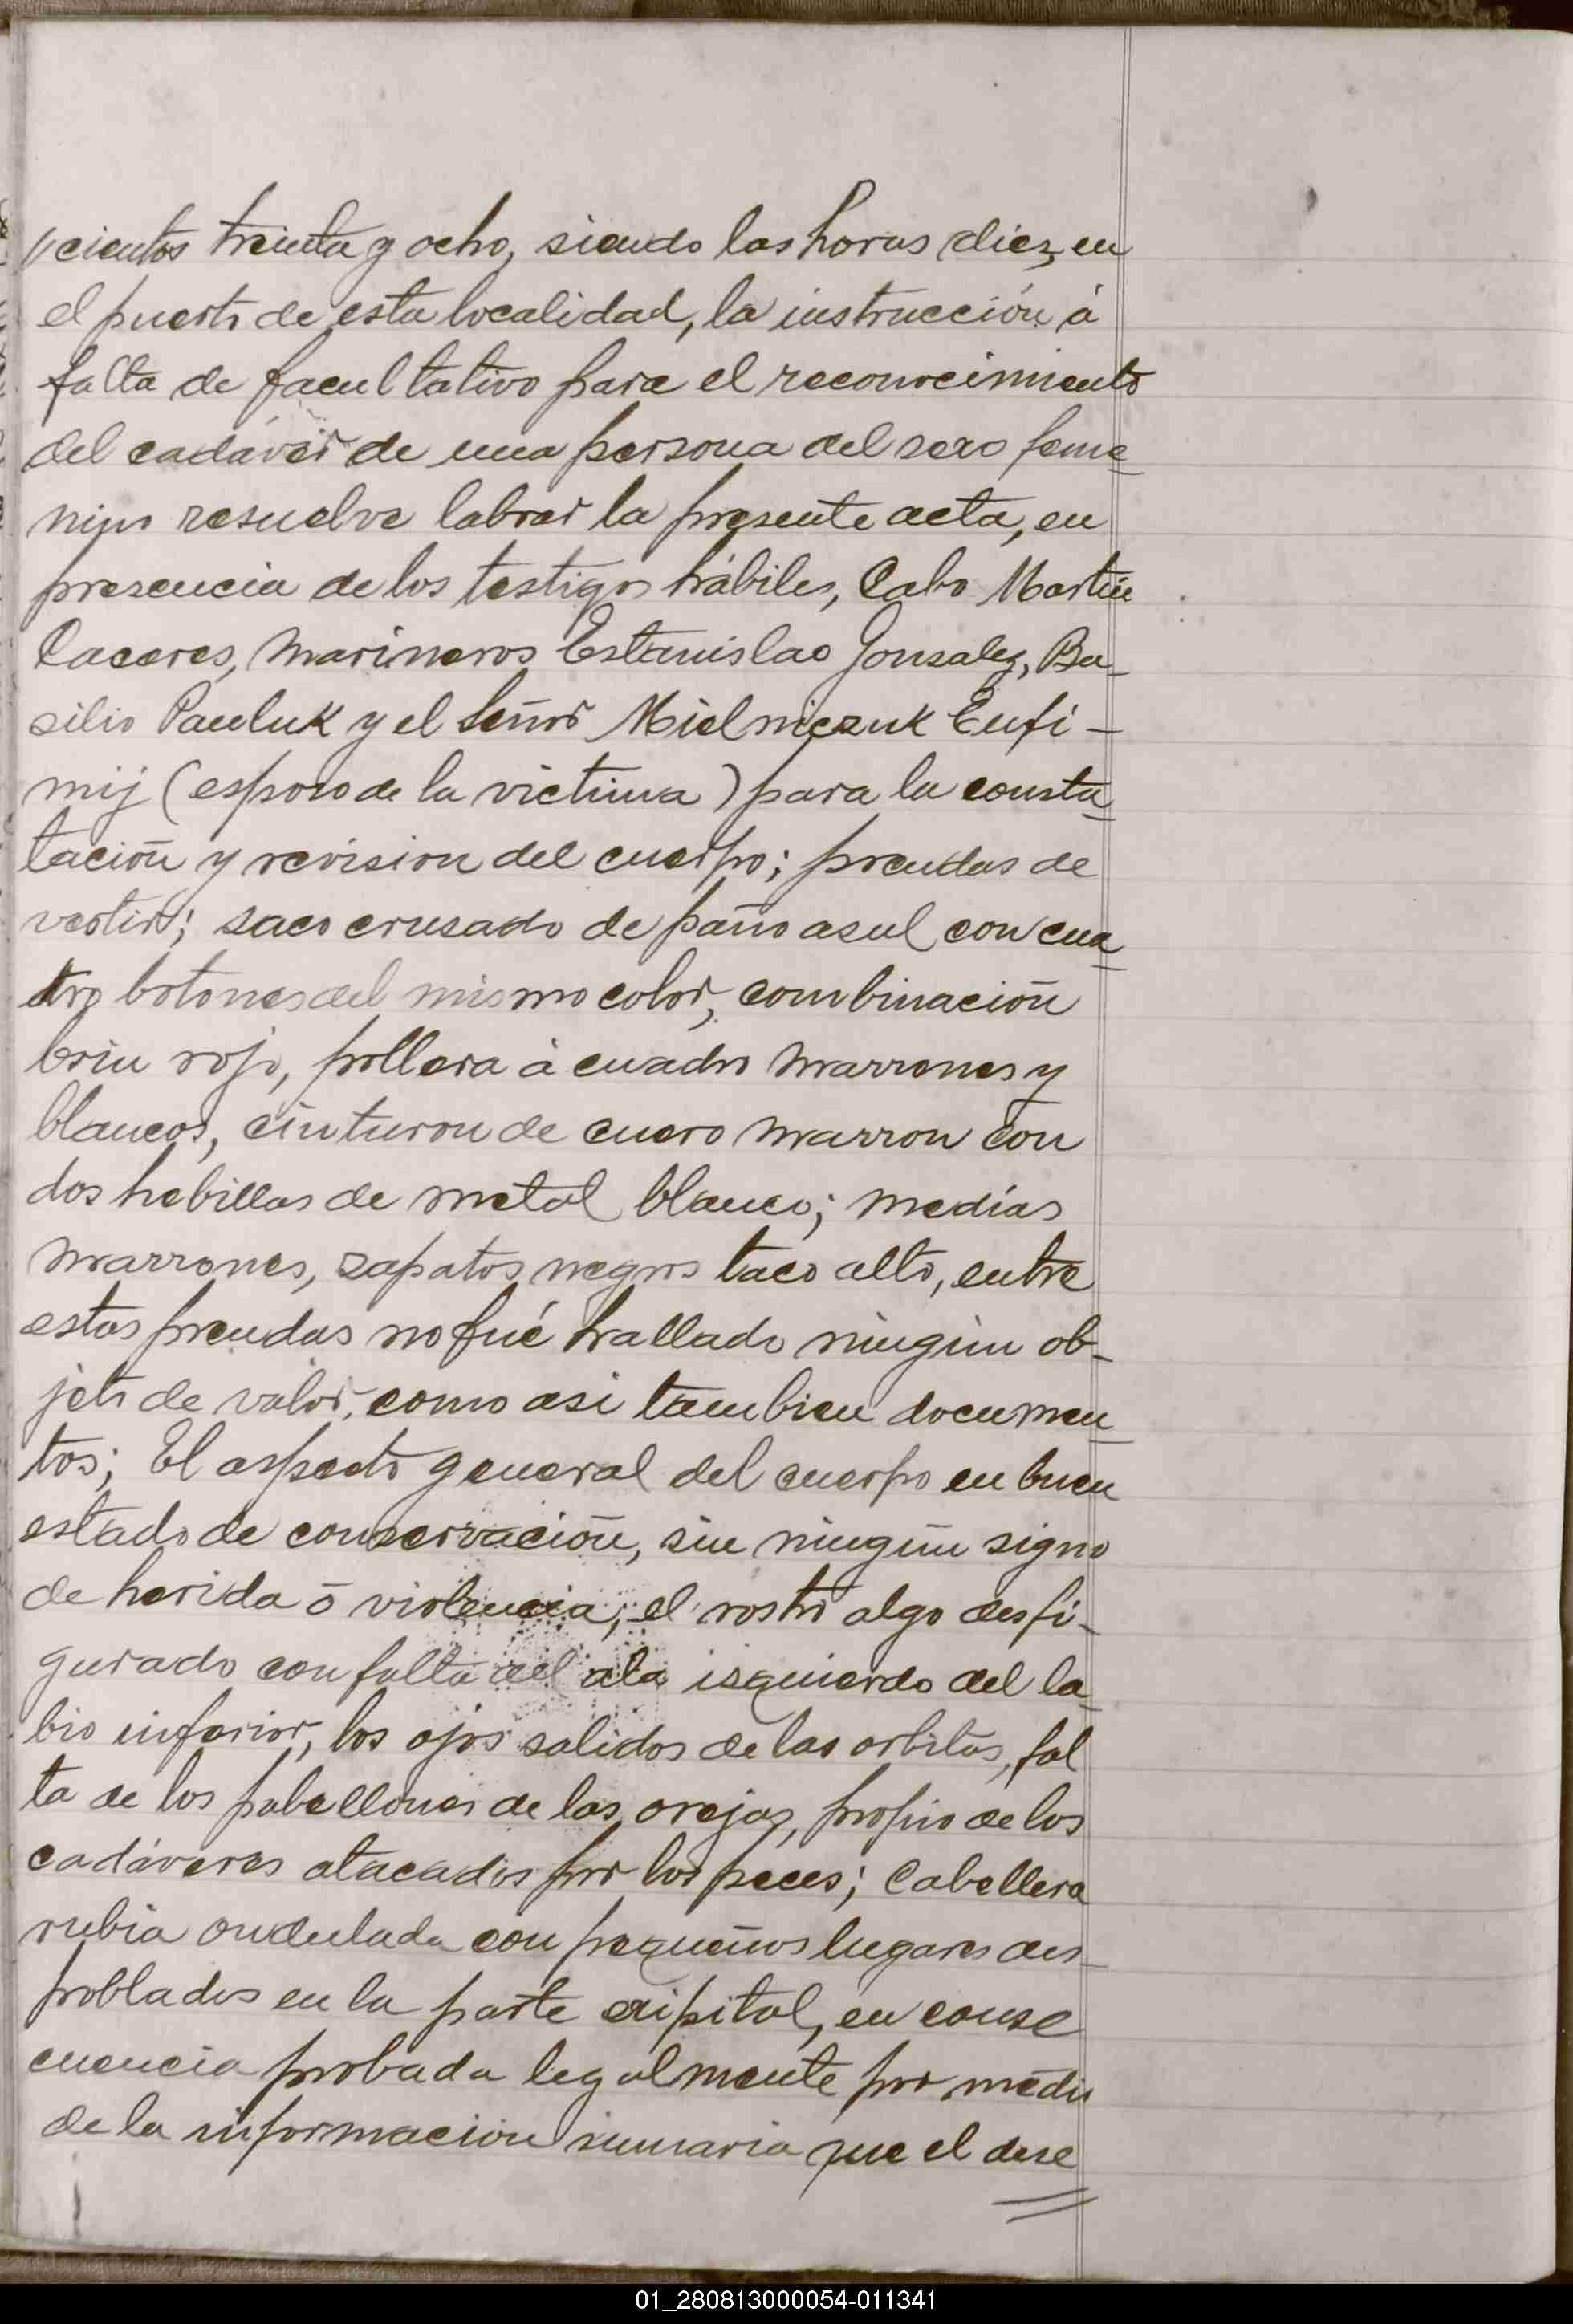 cientos treinta y ocho, siendo las horas diez, en
el puerto de esta localidad, la instrucción á
falta de facultativo para el reconocimiento
del cadáver de una persona del sexo feme-
nino resuelve labrar la presente acta, en
presencia de los testigos hábiles, Cabo Martin
Caceres, marineros Estanislao Gonsalez, Ba-
silio Pauluk y el Señor Mielniczuk Eufi-
mij (esposo de la victima) para la consta-
tación y revision del cuerpo; prendas de
vestir; saco crusado de paño asul con cua-
tro botones del mismo color, combinación
brin rojo, pollera á cuadro marrones y
blancos, cinturon de cuero marron con
dos hebillas de metal blanco; medias
marrones, zapatos negros taco alto, entre
estas prendas no fué hallado ningún ob-
jeto de valor, como asi tambien documen-
tos; El aspecto general del cuerpo en buen
estado de conservación, sin ningún signo
de herida ó violencia, el rostro algo desfi-
gurado con falta del ala isquierdo del la-
bio inferior, los ojos salidos de las orbitas, fal
ta de los pabellones de las orejas, propio de los
cadáveres atacados por los peces; Cabellera
rubia ondulada con pequeños lugares des-
poblados en la parte oxipital, en conse
cuencia probada legalmente por medio
de la informacion sumaria que el dese
01_280813000054-011341